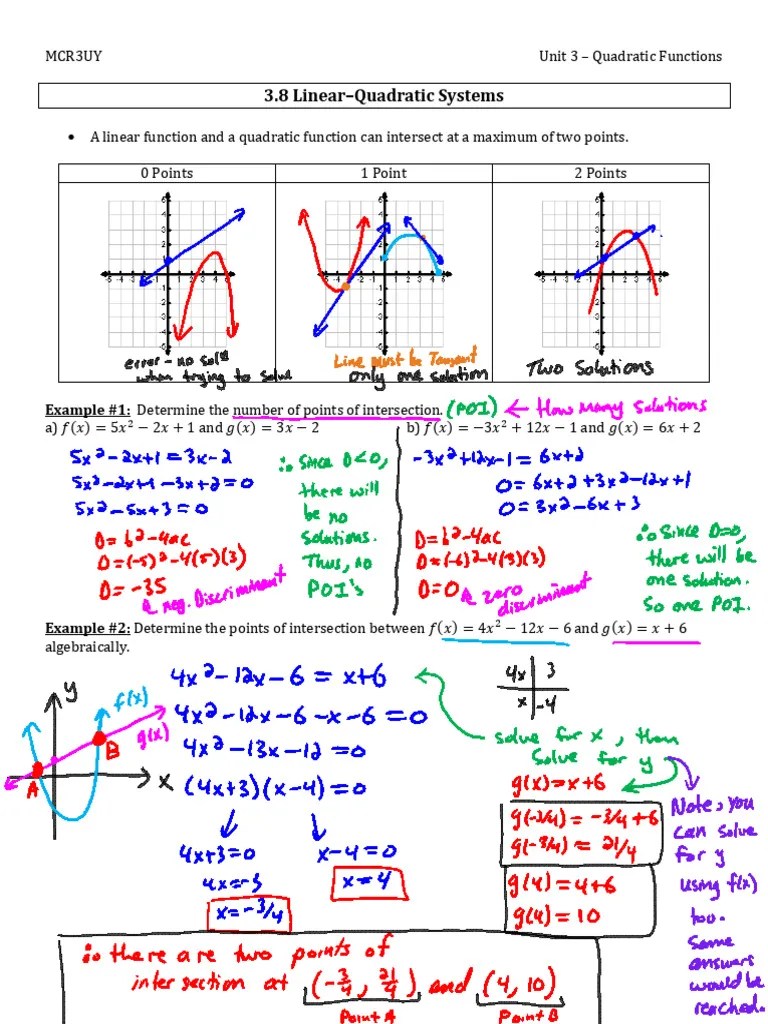 MCR3UY Unit 3 – Quadratic Functions
3.8 Linear–Quadratic Systems
• A linear function and a quadratic function can intersect at a maximum of two points.
0 Points 1 Point 2 Points
error - no solⁿ
when trying to solve
Line must be Tangent
only one solution
Two Solutions
Example #1: Determine the number of points of intersection. (POI) ← How many solutions
a) f(x) = 5x² − 2x + 1 and g(x) = 3x − 2
5x²-2x+1=3x-2
5x²-2x+1-3x+2=0
5x²-5x+3=0
D=b²-4ac
D=(-5)²-4(5)(3)
D=-35
neg. Discriminant
∴ Since D<0,
there will
be no
solutions.
Thus, no
POI's
b) f(x) = −3x² + 12x − 1 and g(x) = 6x + 2
-3x²+12x-1=6x+2
0=6x+2+3x²-12x+1
0=3x²-6x+3
D=b²-4ac
D=(-6)²-4(3)(3)
D=0
zero
discriminant
∴ Since D=0,
there will be
one solution.
So one POI.
Example #2: Determine the points of intersection between f(x) = 4x² − 12x − 6 and g(x) = x + 6
algebraically.
y
f(x)
g(x)
B
A
x
4x²-12x-6 = x+6
4x²-12x-6-x-6=0
4x²-13x-12=0
(4x+3)(x-4)=0
4x+3=0 x-4=0
4x=-3 x=4
x=-3/4
4x 3
x -4
solve for x, then
solve for y
g(x)=x+6
g(-3/4)=-3/4+6
g(-3/4)=21/4
g(4)=4+6
g(4)=10
Note, you
can solve
for y
using f(x)
too.
Same
answers
would be
reached.
∴ there are two points of
intersection at (-3/4, 21/4) and (4, 10)
Point A Point B